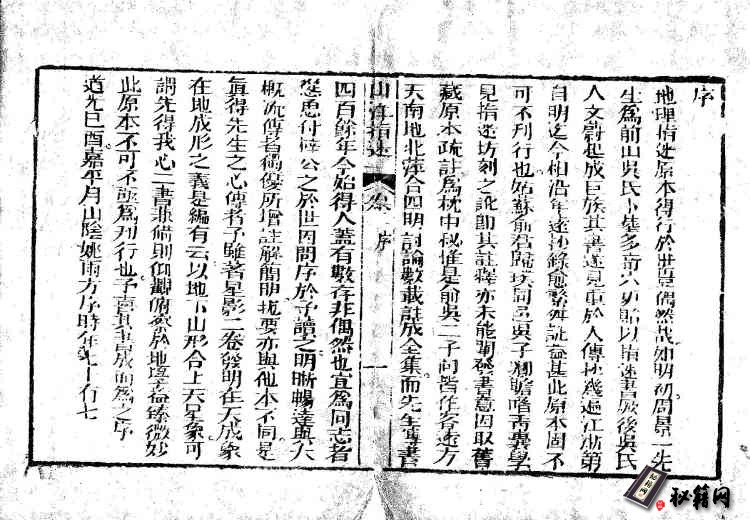 序
地理指迷原本得行於世豈偶然哉如明初周景一先
生為前山吳氏卜墓多奇穴貽以指迷書厥後吳氏
人文蔚起成巨族其書遂見重於人傳抄幾遍江浙第
自明迄今相沿年遠抄錄愈繁舛訛益甚此原本固不
可不刊行也姑蘇俞君歸璞同吳子卿瞻皆青囊學
見指迷坊刻之訛即其註釋亦未能闡發書意因取舊
藏原本疏註為枕中秘惟是俞吳二子向皆作客遠方
天南地北萍合四明討論數載註成全集而先生專書
四百餘年今始得人蓋有數存非偶然也宜為同志者
慫恿付梓公之於世因問序於予讀之明晰暢達與大
概流傳者獨優所增註解簡明扼要亦與他本不同是
真得先生之心傳者予雖著星影二卷發明在天成象
在地成形之義是編有云以地下山形合上天星象可
謂先得我心二書兼備則仰觀俯察於地學益臻微妙
此原本不可不亟為刊行也予喜其書成而為之序
道光己酉嘉平月山陰姚雨方序時年六十有七
山洋指迷
卷一 序
一
秘籍网